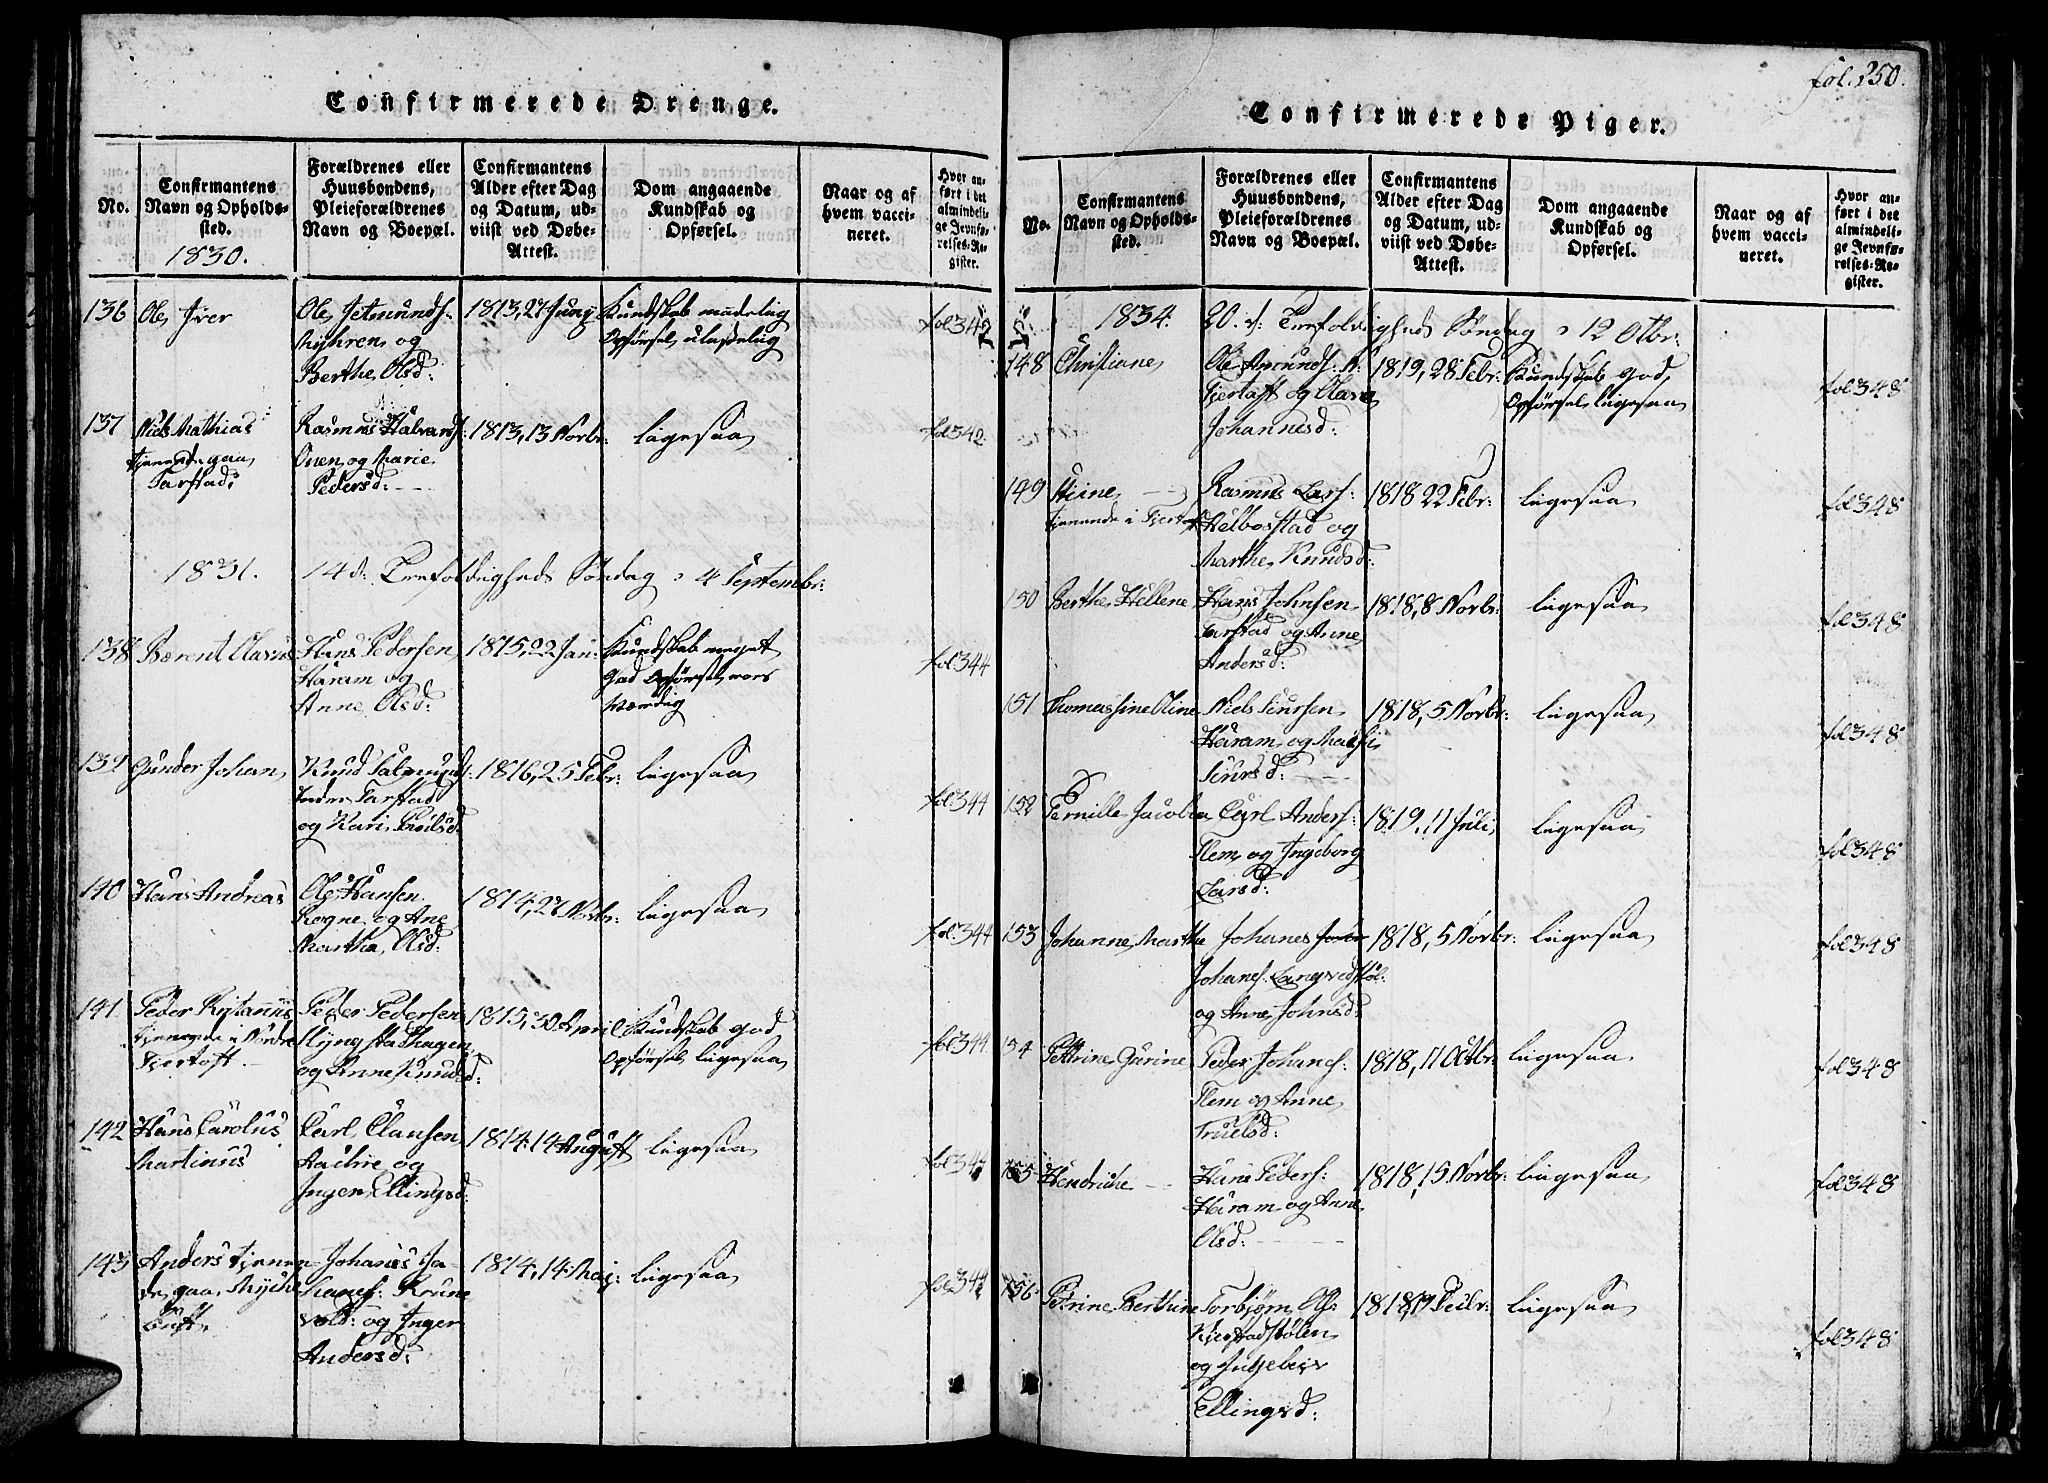 fol. 250.
Confirmerede Drenge.
No.
Confirmantens
Navn og Opholds-
sted.
1830.
Forældrenes eller
Huusbondens,
Pleieforældrenes
Navn og Boepæl.
Confirmantens
Alder efter Dag
og Datum, ud-
viist ved Døbe-
Attest.
Dom angaaende
Kundskab og
Opførsel.
Naar og af
hvem vacci-
neret.
Hvor an-
ført i det
almindeli-
ge Jevnfø-
relses-Re-
gister.
136 Ole Iver
Ole Jetmunds:
Myhren og
Berthe Olsd:
1813, 27 Juny
Kundskab maadelig
Opførsel ulastelig
fol 342
137 Niels Mathias
tjenende paa
Tarstad,
Rasmus Halvards:
Ouen og Marie
Pedersd:
1813, 13 Novbr:
ligesaa
fol 342.
1831. 14 S: Trefoldigheds Søndag d 4 Septembr:
138 Bærent Olaus
Hans Pedersen
Haram og
Anne Olsd:
1815, 22 Jan:
Kundskab meget
god Opførsel roes
værdig
fol 344
139 Gunder Johan
Knud Salmunds:
Inder Tarstad
og Kari Troilsd
1816, 25 Febr:
ligesaa
fol: 344
140 Hans Andreas
Ole Hansen
Rogne og Ane
Martha Olsd:
1814, 27 Novbr:
ligesaa
fol: 344
141
tjenende i Nordre
Fjertoft
Peder Pedersen
Slyngstadhagen
og Anne Knudsd:
1815, 30 April
Kundskab god
Opførsel ligesaa
fol 344
142 Hans Carolus
Martinus
Carl Clausen
og
Ingen Ellingsd:
1814. 14 August
ligesaa
fol 344
143 Anders tjenen-
de paa Myckle-
bust,
Johanes Jo-
hanes:
vold: og Inger
Andersd:
1814, 14 Maj:
ligesaa
fol. 344
Confirmerede Piger.
No.
Confirmantens
Navn og Opholds-
sted.
Forældrenes eller
Huusbondens,
Pleieforældrenes
Navn og Boepæl.
Confirmantens
Alder efter Dag
og Datum, ud-
viist ved Døbe-
Attest.
Dom angaaende
Kundskab og
Opførsel.
Naar og af
hvem vacci-
neret.
Hvor an-
ført i det
almindeli-
ge Jevnfø-
relses-Re-
gister.
1834. 20. S: Trefoldigheds Søndag d 12 Otbr:
148 Christiane
Ole Amunds: N:
Fjertoft og Olave
Johannesd:
1819, 28 Febr:
Kundskab god,
Opførsel ligesaa
fol 348
149 Stine
tjenende i Fjertoft
Rasmus Lars:
Helbostad og
Marthe Knudsd:
1818 22 Febr:
ligesaa
fol 348
150 Berthe Hellene
Hans Johnsen
Tarstad og Anne
Andersd:
1818, 8 Novbr:
ligesaa
fol 348
151 Thomassine Oline
Niels Siursen
Haram og
Siursd:
1818, 5 Novbr:
ligesaa
fol 348
152 Pernille Jacobea
Carl Anders:
Flem og Ingeborg
Larsd:
1819, 11 Juli
ligesaa
fol 348
153 Johanne Marthe
Johanes
Johanes: Langvedstøl:
og Anne Johnsd:
1818, 5 Novbr:
ligesaa
fol 348
154 Pettrine Gurine
Peder Johanes:
Flem og Anne
Truelsd:
1818, 11 Octbr:
ligesaa
fol 348
155 Hendricke
Hans Peders:
Haram og Anne
Olsd:
1818, 15 Novbr:
ligesaa
fol 348
156 Petrine Berthine
Torbjørn Ols:
Kjerstadstølen
og Ingebeir
Ellingsd:
ligesaa
fol 348